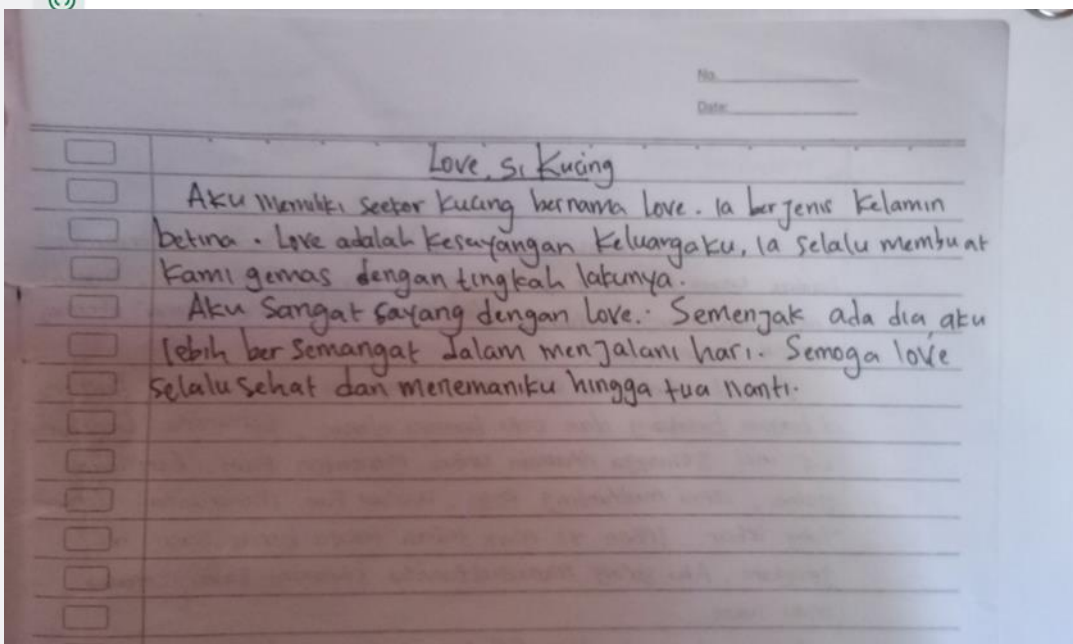 No.
Date:
Love, Si Kucing
Aku memiliki seekor kucing bernama love. Ia berjenis kelamin
betina. Love adalah kesayangan keluargaku, ia selalu membuat
kami gemas dengan tingkah lakunya.
Aku sangat sayang dengan love. Semenjak ada dia aku
lebih bersemangat dalam menjalani hari. Semoga love
selalu sehat dan menemaniku hingga tua nanti.